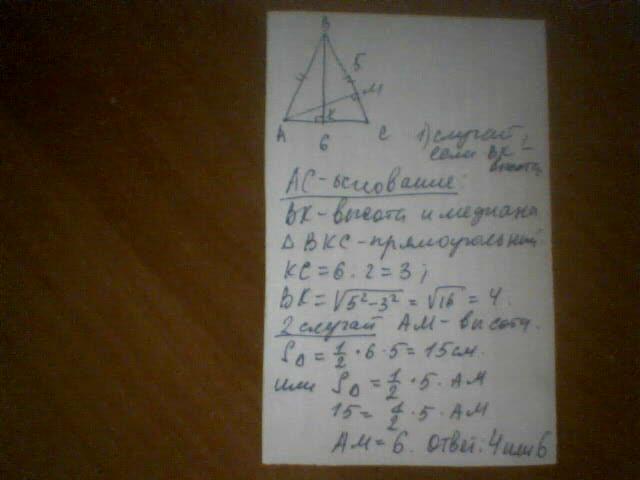 B
5
M
A K C
6
1) случай,
если BK -
высота,
AC - основание:
BK - высота и медиана
Δ BKC - прямоугольный
KC = 6 : 2 = 3;
BK = √5²-3² = √16 = 4.
2 случай AM - высота.
SΔ = 1/2 · 6 · 5 = 15 см.
или SΔ = 1/2 · 5 · AM
15 = 1/2 · 5 · AM
AM = 6. Ответ: 4 или 6